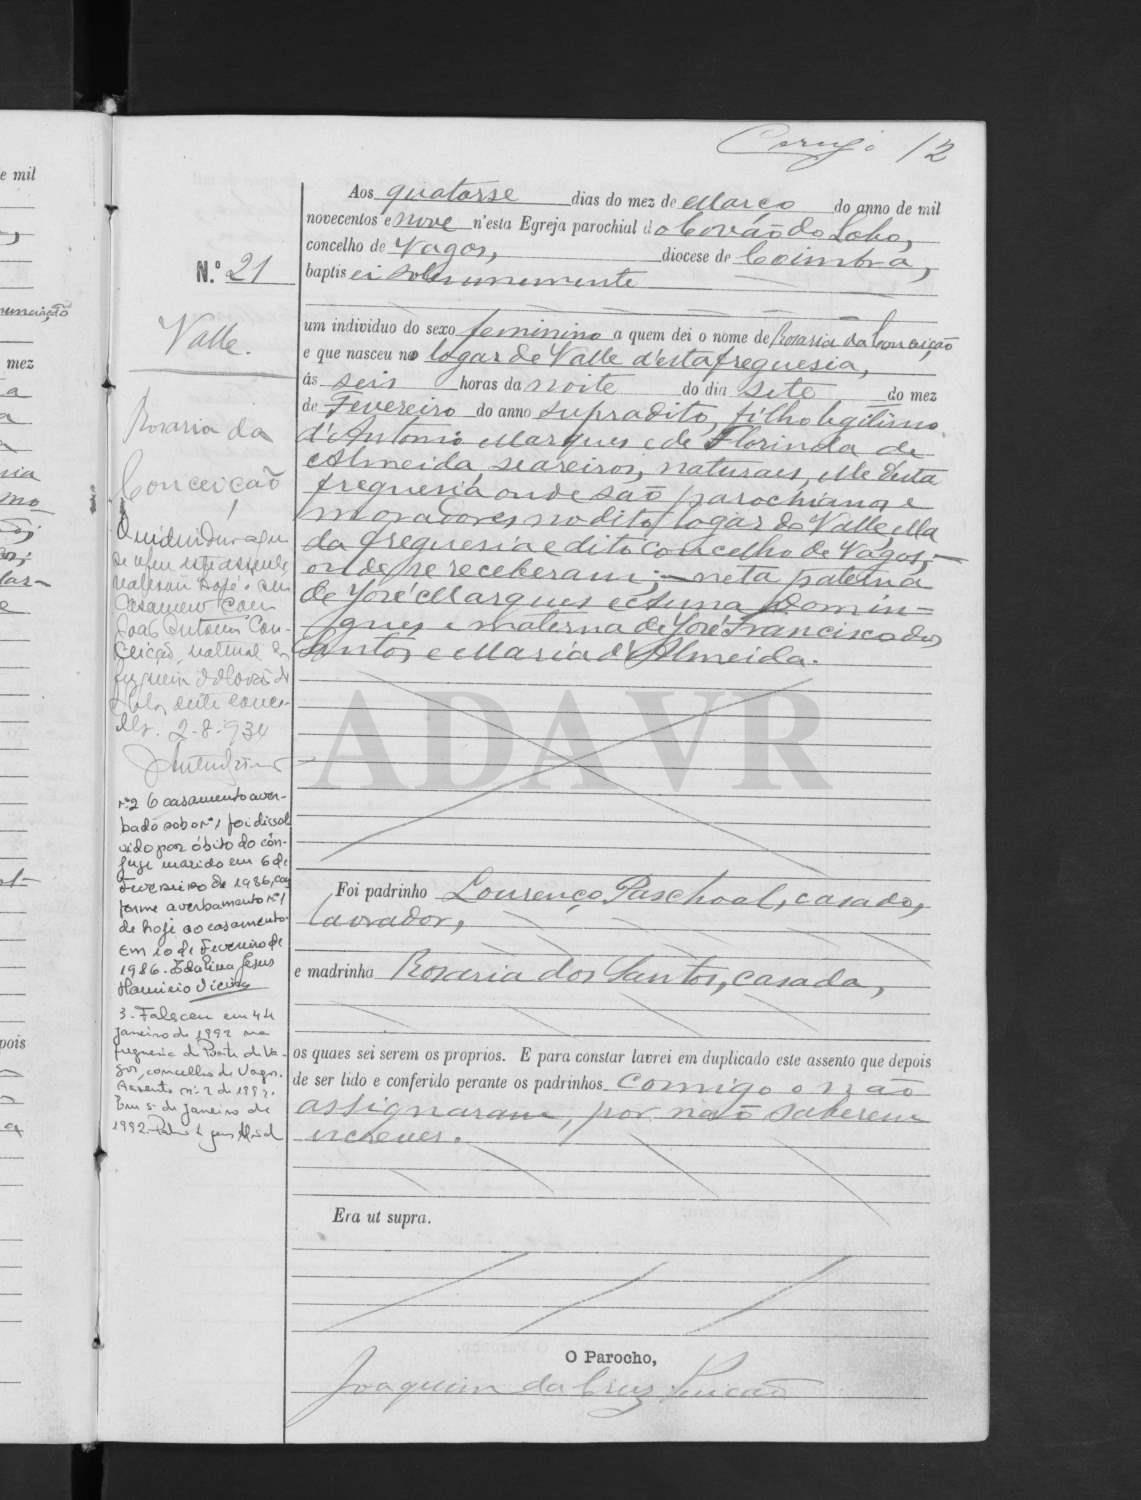 12
Aos quatorse dias do mez de Março do anno de mil
novecentos e nove n'esta Egreja parochial do Covão do Lobo,
concelho de Vagos, diocese de Coimbra,
baptisei solemnemente
um individuo do sexo feminino a quem dei o nome de Rosaria da Conceição
e que nasceu no logar de Valle d'esta freguesia,
ás seis horas da noite do dia sete do mez
de Fevereiro do anno supradito, filho legitimo
d'Antonio Marques e de Florinda de
Almeida, seareiros, naturaes, elle d'esta
freguesia onde são parochianos e
moradores no dito logar do Valle, ella
da freguesia e dito concelho de Vagos,
onde se receberam; neta paterna
de José Marques e Anna Domin=
gues e materna de José Francisco dos
Santos e Maria d'Almeida.
Foi padrinho Lourenço Paschoal, casado,
lavrador,
e madrinha Rosaria dos Santos, casada,
os quaes sei serem os proprios. E para constar lavrei em duplicado este assento que depois
de ser lido e conferido perante os padrinhos comigo o não
assignaram, por não saberem
escrever.
Era ut supra.
O Parocho,
Joaquim da Cruz
N.º 21
Valle.
Rosaria da
Conceição
O individuo a que
se refere este assento
realisou hoje o seu
casamento com
João Antonio Con-
ceição, natural da
freguesia do Covão do
Lobo, deste conce-
lho. 2-8-934
nº 2 O casamento aver-
bado sob o nº 1 foi dissol
vido por óbito do côn-
juge marido em 6 de
Fevereiro de 1986, con
forme averbamento nº 1
de hoje ao casamento.
Em 10 de Fevereiro de
1986. Idalina Jesus
3- Faleceu em
Janeiro de 1992 na
freguesia de Ponte de Va-
gos, concelho de Vagos.
Assento nº 2 de 1992.
Em 5 de Janeiro de
1992.
e mil
mez
pois
ADAVR